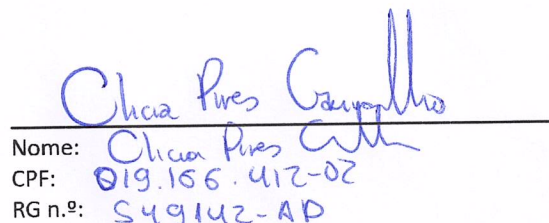 Clicia Pires Carvalho
Nome: Clicia Pires
CPF: 019.166.412-02
RG n.º: 549142-AP